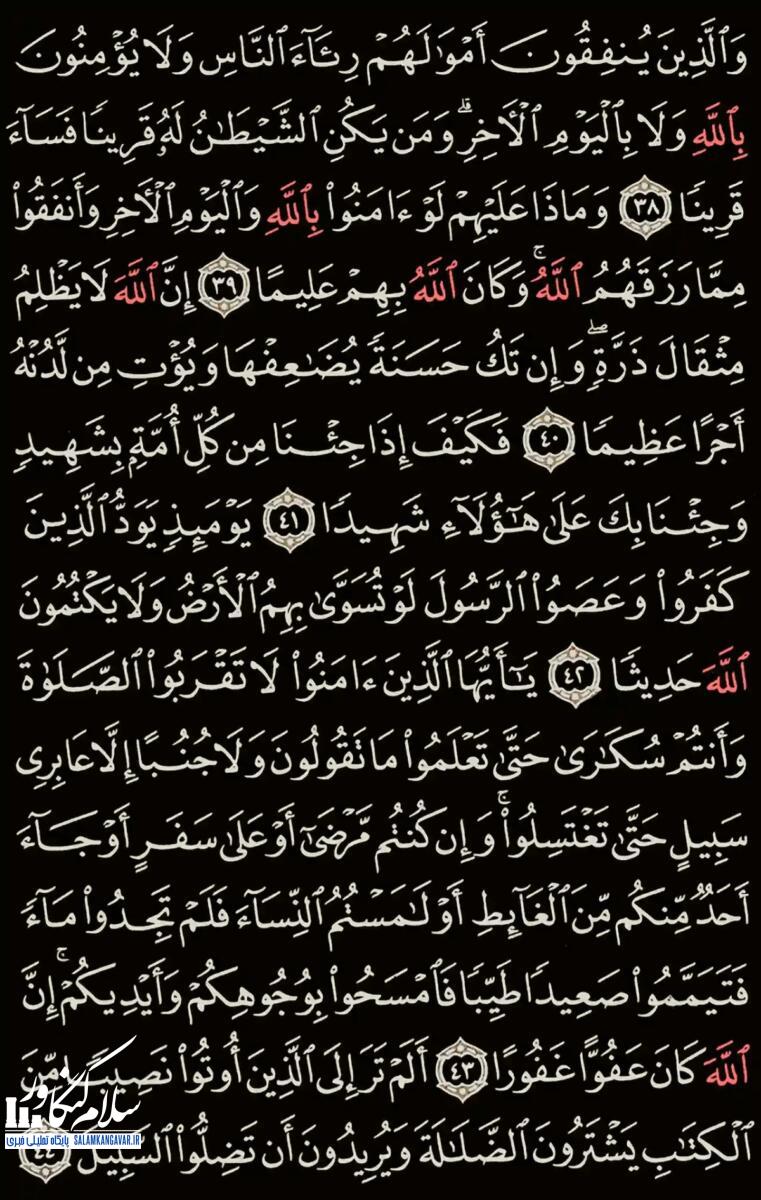 وَٱلَّذِينَ يُنفِقُونَ أَمۡوَٰلَهُمۡ رِئَآءَ ٱلنَّاسِ وَلَا يُؤۡمِنُونَ
بِٱللَّهِ وَلَا بِٱلۡيَوۡمِ ٱلۡأٓخِرِۗ وَمَن يَكُنِ ٱلشَّيۡطَٰنُ لَهُۥ قَرِينٗا فَسَآءَ
قَرِينٗا ٣٨ وَمَاذَا عَلَيۡهِمۡ لَوۡ ءَامَنُواْ بِٱللَّهِ وَٱلۡيَوۡمِ ٱلۡأٓخِرِ وَأَنفَقُواْ
مِمَّا رَزَقَهُمُ ٱللَّهُۚ وَكَانَ ٱللَّهُ بِهِمۡ عَلِيمًا ٣٩ إِنَّ ٱللَّهَ لَا يَظۡلِمُ
مِثۡقَالَ ذَرَّةٖۖ وَإِن تَكُ حَسَنَةٗ يُضَٰعِفۡهَا وَيُؤۡتِ مِن لَّدُنۡهُ
أَجۡرًا عَظِيمٗا ٤٠ فَكَيۡفَ إِذَا جِئۡنَا مِن كُلِّ أُمَّةِۭ بِشَهِيدٖ
وَجِئۡنَا بِكَ عَلَىٰ هَٰٓؤُلَآءِ شَهِيدٗا ٤١ يَوۡمَئِذٖ يَوَدُّ ٱلَّذِينَ
كَفَرُواْ وَعَصَوُاْ ٱلرَّسُولَ لَوۡ تُسَوَّىٰ بِهِمُ ٱلۡأَرۡضُ وَلَا يَكۡتُمُونَ
ٱللَّهَ حَدِيثٗا ٤٢ يَٰٓأَيُّهَا ٱلَّذِينَ ءَامَنُواْ لَا تَقۡرَبُواْ ٱلصَّلَوٰةَ
وَأَنتُمۡ سُكَٰرَىٰ حَتَّىٰ تَعۡلَمُواْ مَا تَقُولُونَ وَلَا جُنُبًا إِلَّا عَابِرِي
سَبِيلٍ حَتَّىٰ تَغۡتَسِلُواْۚ وَإِن كُنتُم مَّرۡضَىٰٓ أَوۡ عَلَىٰ سَفَرٍ أَوۡ جَآءَ
أَحَدٞ مِّنكُم مِّنَ ٱلۡغَآئِطِ أَوۡ لَٰمَسۡتُمُ ٱلنِّسَآءَ فَلَمۡ تَجِدُواْ مَآءٗ
فَتَيَمَّمُواْ صَعِيدٗا طَيِّبٗا فَٱمۡسَحُواْ بِوُجُوهِكُمۡ وَأَيۡدِيكُمۡۚ إِنَّ
ٱللَّهَ كَانَ عَفُوًّا غَفُورًا ٤٣ أَلَمۡ تَرَ إِلَى ٱلَّذِينَ أُوتُواْ نَصِيبٗا مِّنَ
ٱلۡكِتَٰبِ يَشۡتَرُونَ ٱلضَّلَٰلَةَ وَيُرِيدُونَ أَن تَضِلُّواْ ٱلسَّبِيلَ ٤٤
سلام کنگاور
پایگاه تحلیلی خبری SALAMKANGAVAR.IR